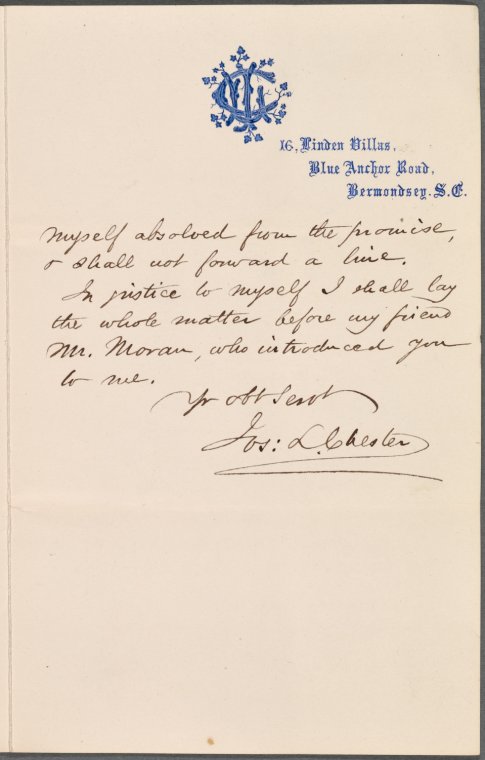 16, Linden Villas,
Blue Anchor Road,
Bermondsey. S.E.
myself absolved from the promise,
& shall not forward a line.
In justice to myself I shall lay
the whole matter before my friend
Mr. Moran, who introduced you
to me.
Yr obt Servt
Jos: L. Chester